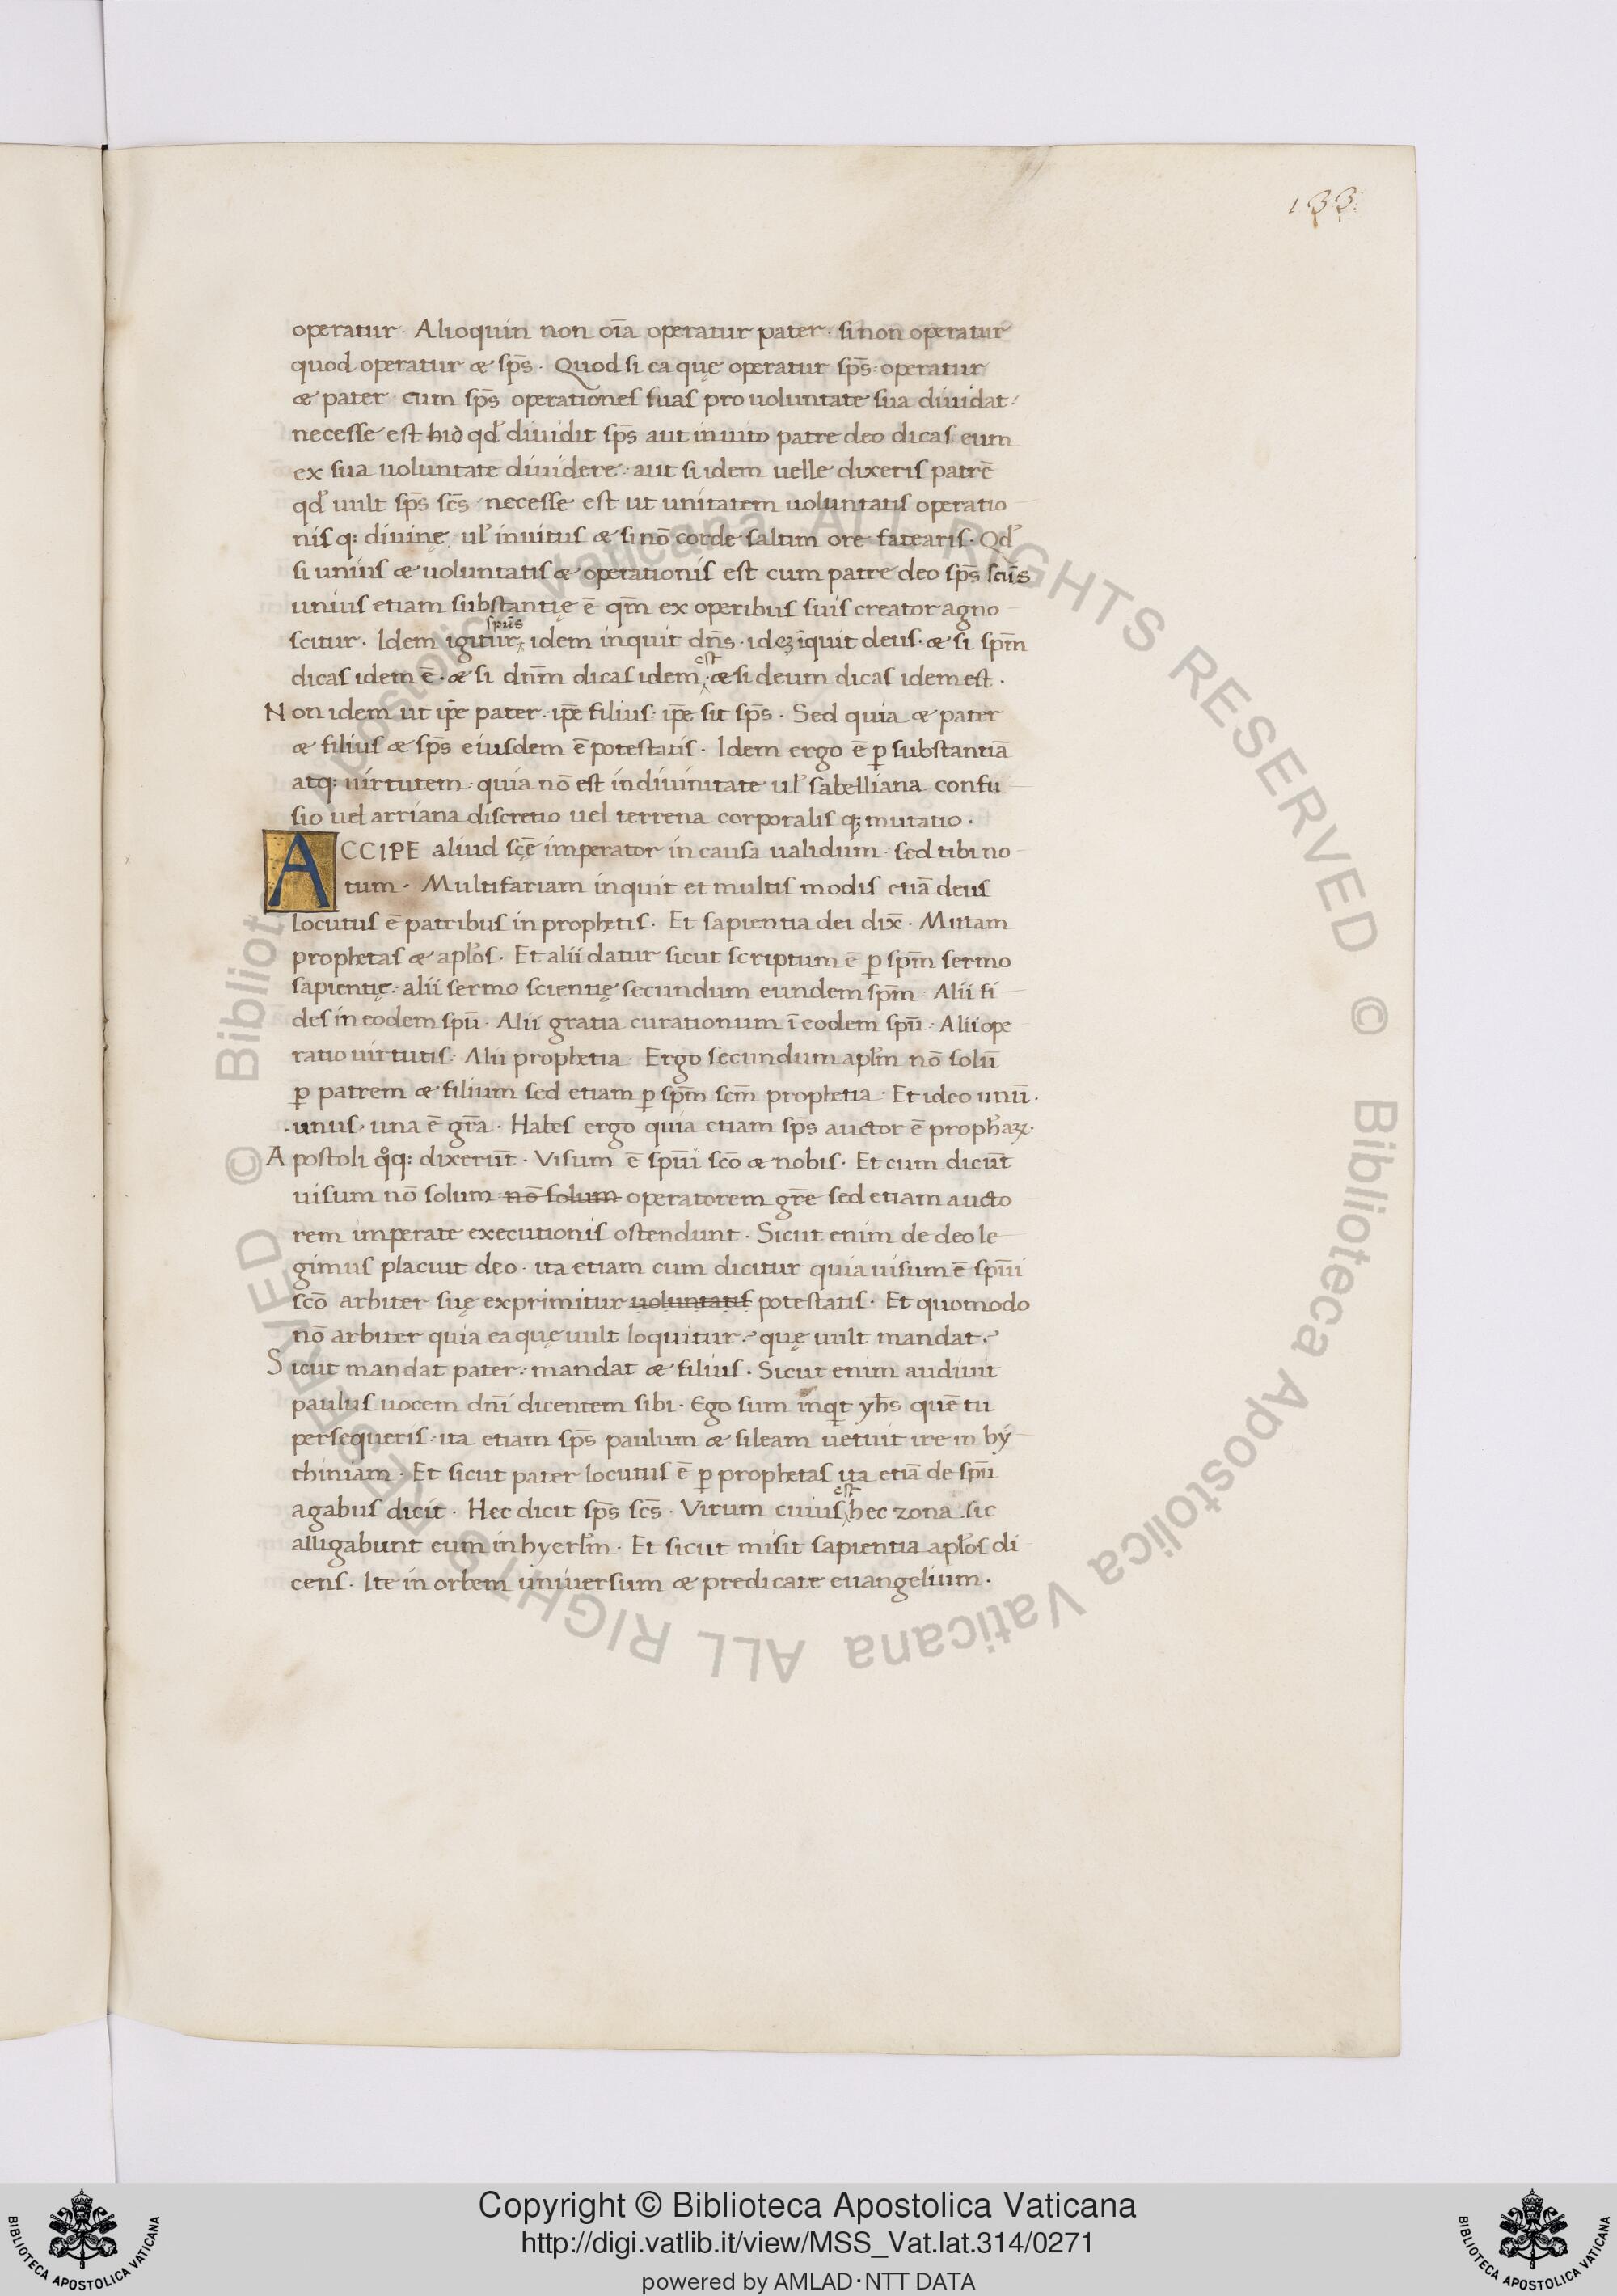 133.
operatur · Alioquin non oīa operatur pater · si non operatur
quod operatur & sp̄s · Quod si ea quę operatur sp̄s · operatur
& pater · cum sp̄s operationes suas pro uoluntate sua diuidat ·
necesse est qd̓ diuidit sp̄s aut inuito patre deo dicas eum
ex sua uoluntate diuidere · aut si idem uelle dixeris patrē
qd̓ uult sp̄s sc̄s · necesse est ut unitatem uoluntatis operatio
nis q: diuinę ul̓ inuitus & si nō corde saltim ore fatearis · Qd̓
si unius & uoluntatis & operationis est cum patre deo sp̄s
unius etiam substantię ē qm̄ ex operibus suis creator agno
scitur · Idem igitur spūs idem inquit dn̄s · idez īquit deus · & si spm̄
dicas idem ē · & si dnm̄ dicas idem est · & si deum dicas idem est ·
Non idem ut ip̄e pater · ip̄e filius · ip̄e sit sp̄s · Sed quia & pater
& filius & sp̄s eiusdem ē potestatis · Idem ergo ē ꝑ substantiā
atq: uirtutem · quia nō est in diuinitate ul̓ sabelliana confu
sio uel arriana discretio uel terrena corporalis q; mutatio ·
ACCIPE aliud sc̄ę imperator in causa ualidum · sed tibi no
tum · Multifariam inquit et multis modis etiā deus
locutus ē patribus in prophetis · Et sapientia dei dix̄ · Mittam
prophetas & apl̓os · Et alii datur sicut scriptum ē ꝑ spm̄ sermo
sapientię · alii sermo scientię secundum eundem spm̄ · Alii fi
des in eodem spū · Alii gratia curationum ī eodem spū · Alii ope
ratio uirtutis · Alii prophetia · Ergo secundum apl̓m nō solū
ꝑ patrem & filium sed etiam ꝑ spm̄ scm̄ prophetia · Et ideo unū ·
· unus · una ē gr̄a · Habes ergo quia etiam sp̄s auctor ē proph̓aꝝ ·
Apostoli qͦq: dixerūt · Visum ē spūi scō & nobis · Et cum dicūt
uisum nō solum nō solum operatorem gr̄e sed etiam aucto
rem imperate executionis ostendunt · Sicut enim de deo le
gimus placuit deo · ita etiam cum dicitur quia uisum ē spūi
scō arbiter suę exprimitur uoluntatis potestatis · Et quomodo
nō arbiter quia ea quę uult loquitur · quę uult mandat ·
Sicut mandat pater · mandat & filius · Sicut enim audiuit
paulus uocem dn̄i dicentem sibi · Ego sum inqͥt yh̄s quē tu
persequeris · ita etiam sp̄s paulum & sileam uetuit ire in bý
thiniam · Et sicut pater locutus ē ꝑ prophetas ita etiā de spū
agabus dicit · Hec dicit sp̄s sc̄s · Virum cuius est hec zona sic
alligabunt eum in hyerl̓m · Et sicut misit sapientia apl̓os di
cens · Ite in orbem uniuersum & predicate euangelium ·
© Biblioteca Apostolica Vaticana ALL RIGHTS RESERVED © Biblioteca Apostolica Vaticana ALL RIGHTS RESERVED
Copyright © Biblioteca Apostolica Vaticana
http://digi.vatlib.it/view/MSS_Vat.lat.314/0271
powered by AMLAD·NTT DATA
BIBLIOTECA APOSTOLICA VATICANA
BIBLIOTECA APOSTOLICA VATICANA